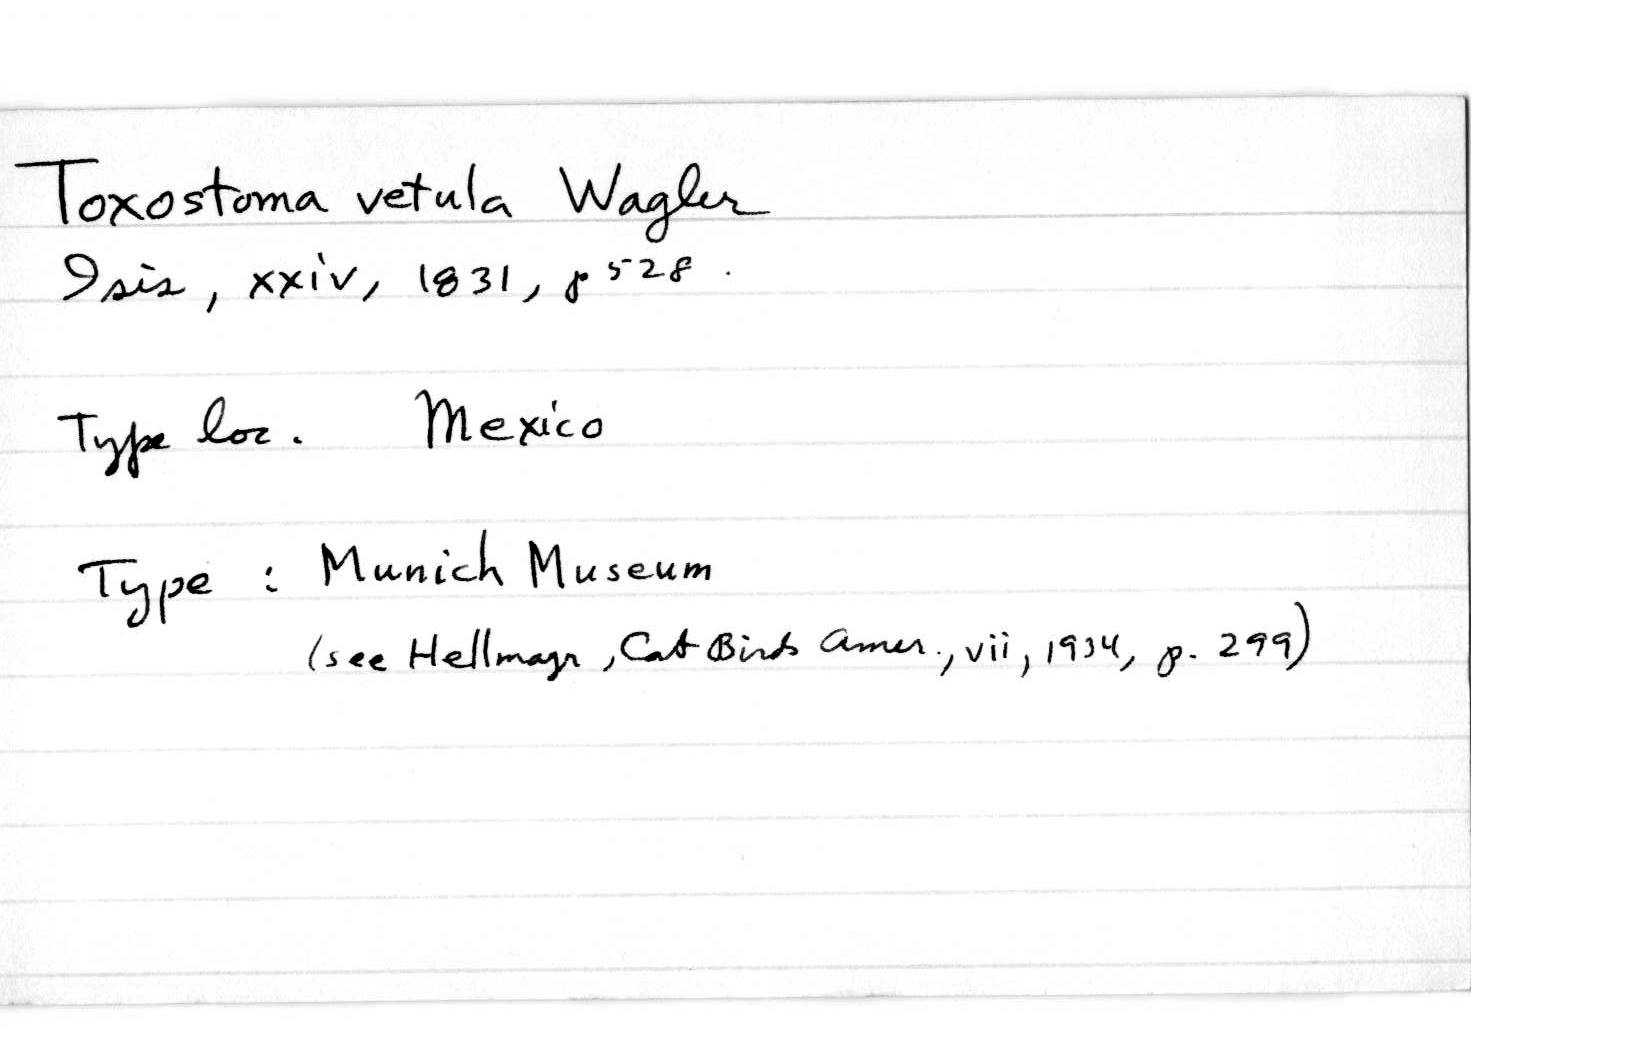 Toxostoma vetula Wagler
Isis, xxiv, 1831, p 528.
Type loc. Mexico
Type : Munich Museum
(see Hellmayr, Cat Birds Amer., vii, 1934, p. 299)